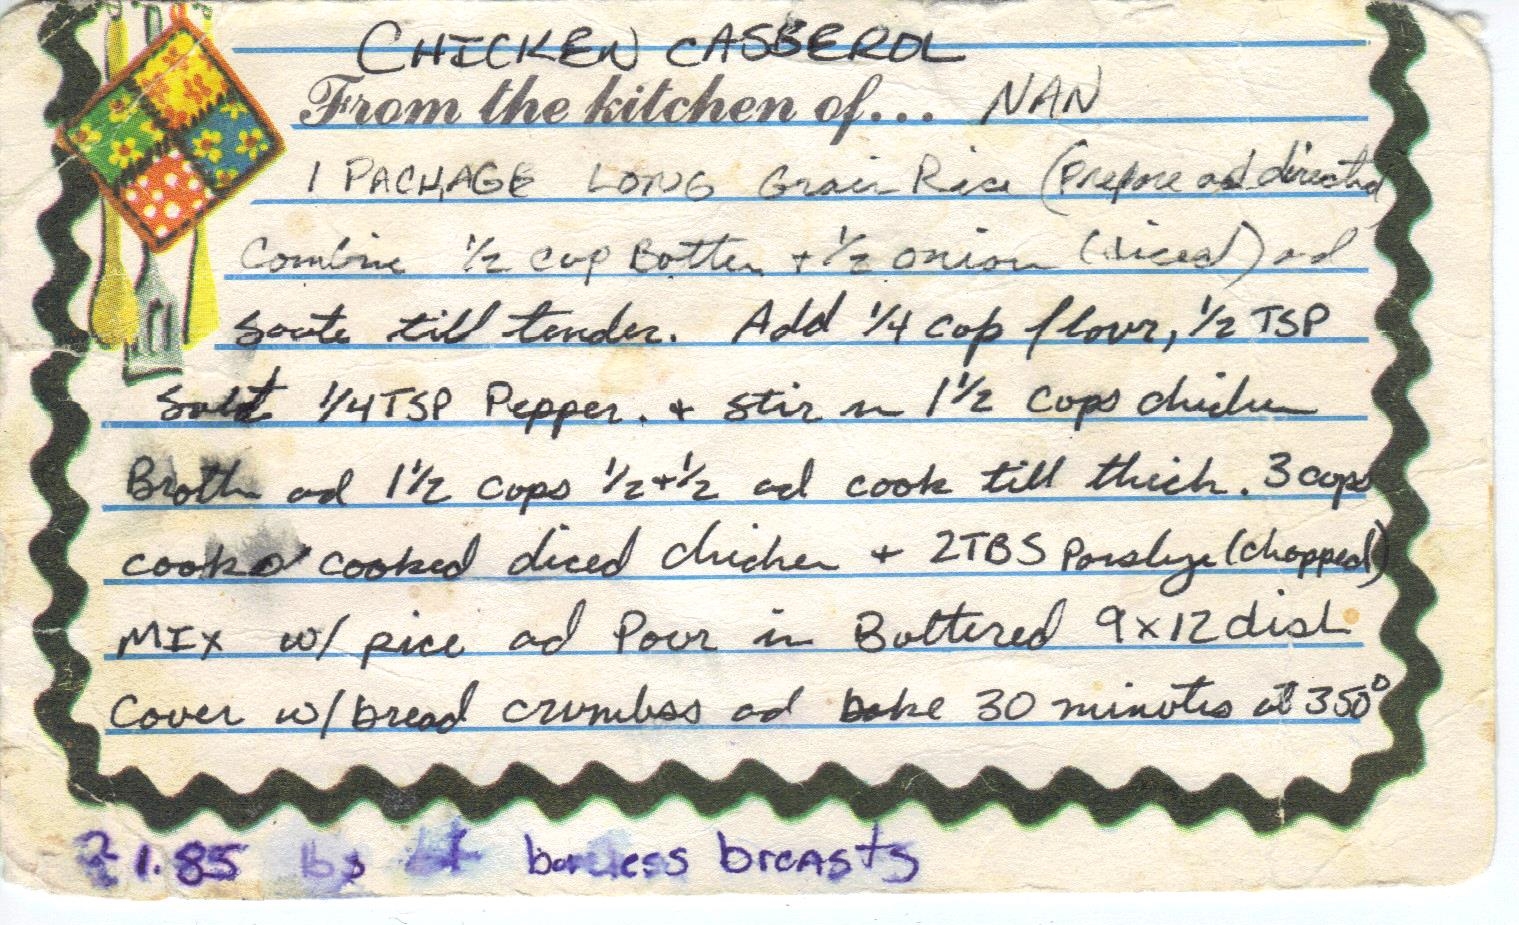 CHICKEN CASBEROL
From the kitchen of... NAN
1 PACKAGE LONG Grain Rice (Prepare as directed
Combine 1/2 cup Butter + 1/2 onion (diced) ad
saute till tender. Add 1/4 cup flour, 1/2 TSP
Salt 1/4 TSP Pepper. + stir in 1 1/2 cups chicken
Broth ad 1 1/2 cups 1/2 + 1/2 ad cook till thick. 3 cups
cooked diced chicken + 2TBS Parslye (chopped)
MIX w/ rice ad Pour in Buttered 9x12 dish
Cover w/ bread crumbss ad bake 30 minutes at 350°
1.85 lbs of boneless breasts